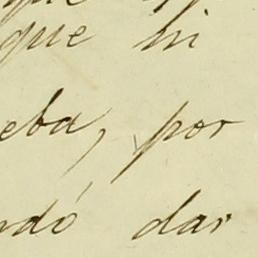 que
que hi
eba, por
ndó dar